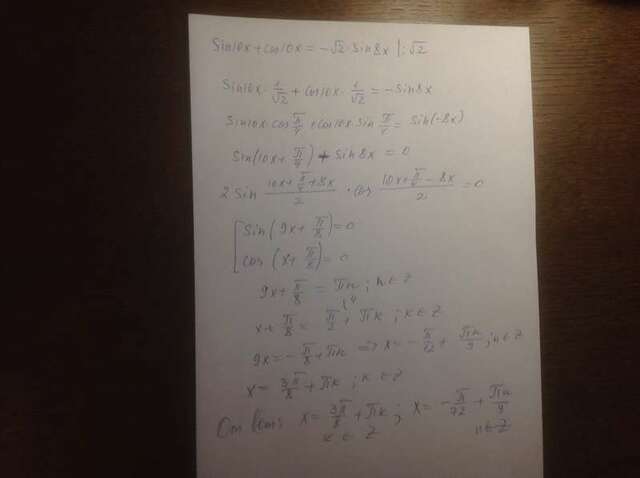 Sin10x + cos10x = -√2 · Sin8x |: √2
Sin10x · 1/√2 + cos10x · 1/√2 = -Sin8x
Sin10x · cos π/4 + cos10x · Sin π/4 = Sin(-8x)
Sin(10x + π/4) + Sin8x = 0
2 · Sin (10x + π/4 + 8x)/2 · cos (10x + π/4 - 8x)/2 = 0
[ Sin(9x + π/8) = 0
cos(x + π/8) = 0
9x + π/8 = πn ; n ∈ Z
x + π/8 = π/2 + πk ; k ∈ Z
9x = -π/8 + πn => x = -π/72 + πn/9 ; n ∈ Z
x = 3π/8 + πk ; k ∈ Z
Ответ: x = 3π/8 + πk ; x = -π/72 + πn/9
k ∈ Z n ∈ Z